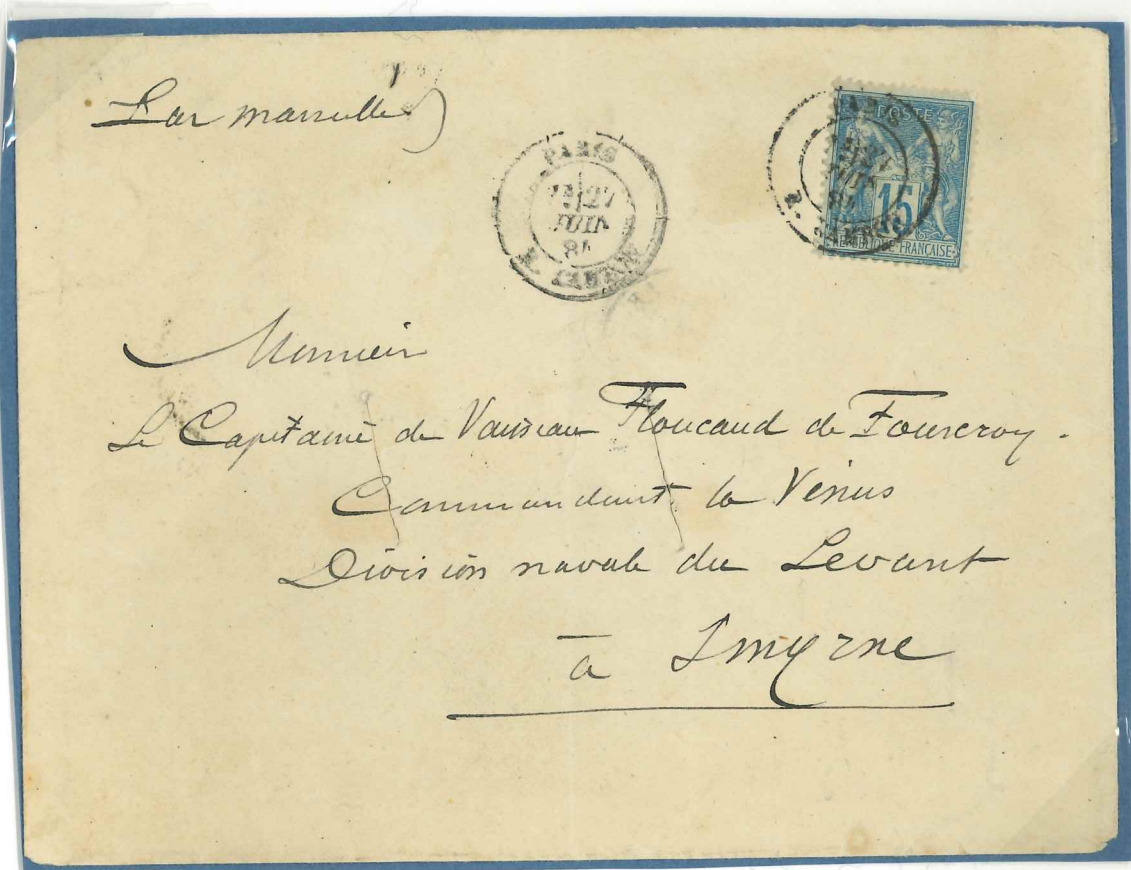 Par marseille
PARIS
27
JUIN
84
R. CAMBON
PARIS
JUIN
84
R. CAMBON
POSTE
15
REPUBLIQUE FRANÇAISE
Monsieur
Le Capitaine de Vaisseau Floucaud de Fourcroy.
Commandant la Vénus
Division navale du Levant
à Smyrne